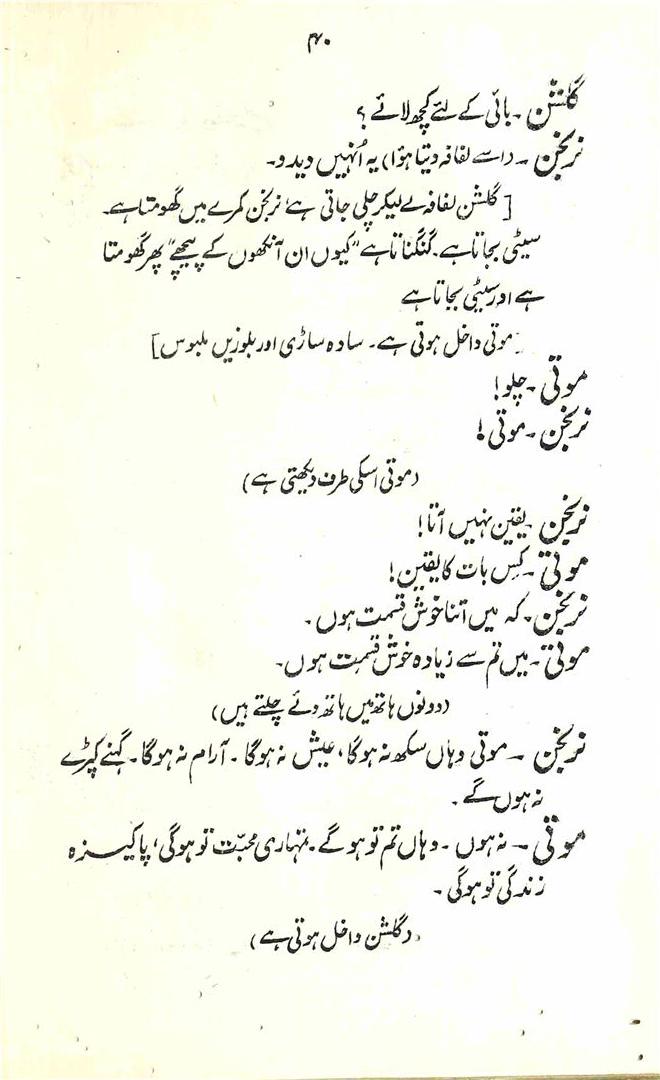 ۴۰
گلشن ۔ بائی کے لئے کچھ لائے ؟
نرنجن ۔ (اسے لفافہ دیتا ہوا) یہ اُنہیں دیدو۔
[گلشن لفافہ لے لیکر چلی جاتی ہے‘ نرنجن کمرے میں گھومتا ہے۔
سیٹی بجاتا ہے۔ گنگناتا ہے "کیوں ان آنکھوں کے پیچھے" پھر گھومتا
ہے اور سیٹی بجاتا ہے
موتی داخل ہوتی ہے۔ سادہ ساڑی اور بلوز میں ملبوس]
موتی ۔ چلو!
نرنجن ۔ موتی!
(موتی اسکی طرف دیکھتی ہے)
نرنجن ۔ یقین نہیں آتا!
موتی ۔ کِس بات کا یقین!
نرنجن ۔ کہ میں اتنا خوش قسمت ہوں۔
موتی ۔ میں تم سے زیادہ خوش قسمت ہوں۔
(دونوں ہاتھ میں ہاتھ دئے چلتے ہیں)
نرنجن ۔ موتی وہاں سکھ نہ ہوگا، عیش نہ ہوگا ۔ آرام نہ ہوگا۔ گہنے کپڑے
نہ ہوں گے ۔
موتی ۔ نہ ہوں ۔ وہاں تم تو ہو گے ۔ تمہاری محبّت تو ہوگی، پاکیزہ
زندگی تو ہوگی ۔
(گلشن داخل ہوتی ہے)